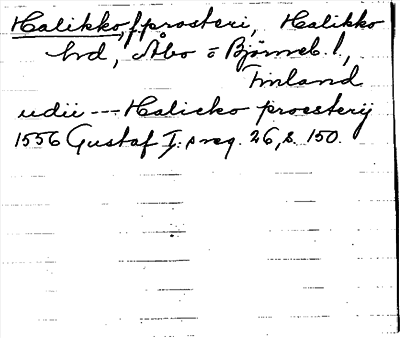 Halikko, f prosteri, Halikko
hd, Åbo o Björneb. l.,
Finland
udii --- Halicko proesterij
1556 Gustaf I:s reg. 26, s. 150.